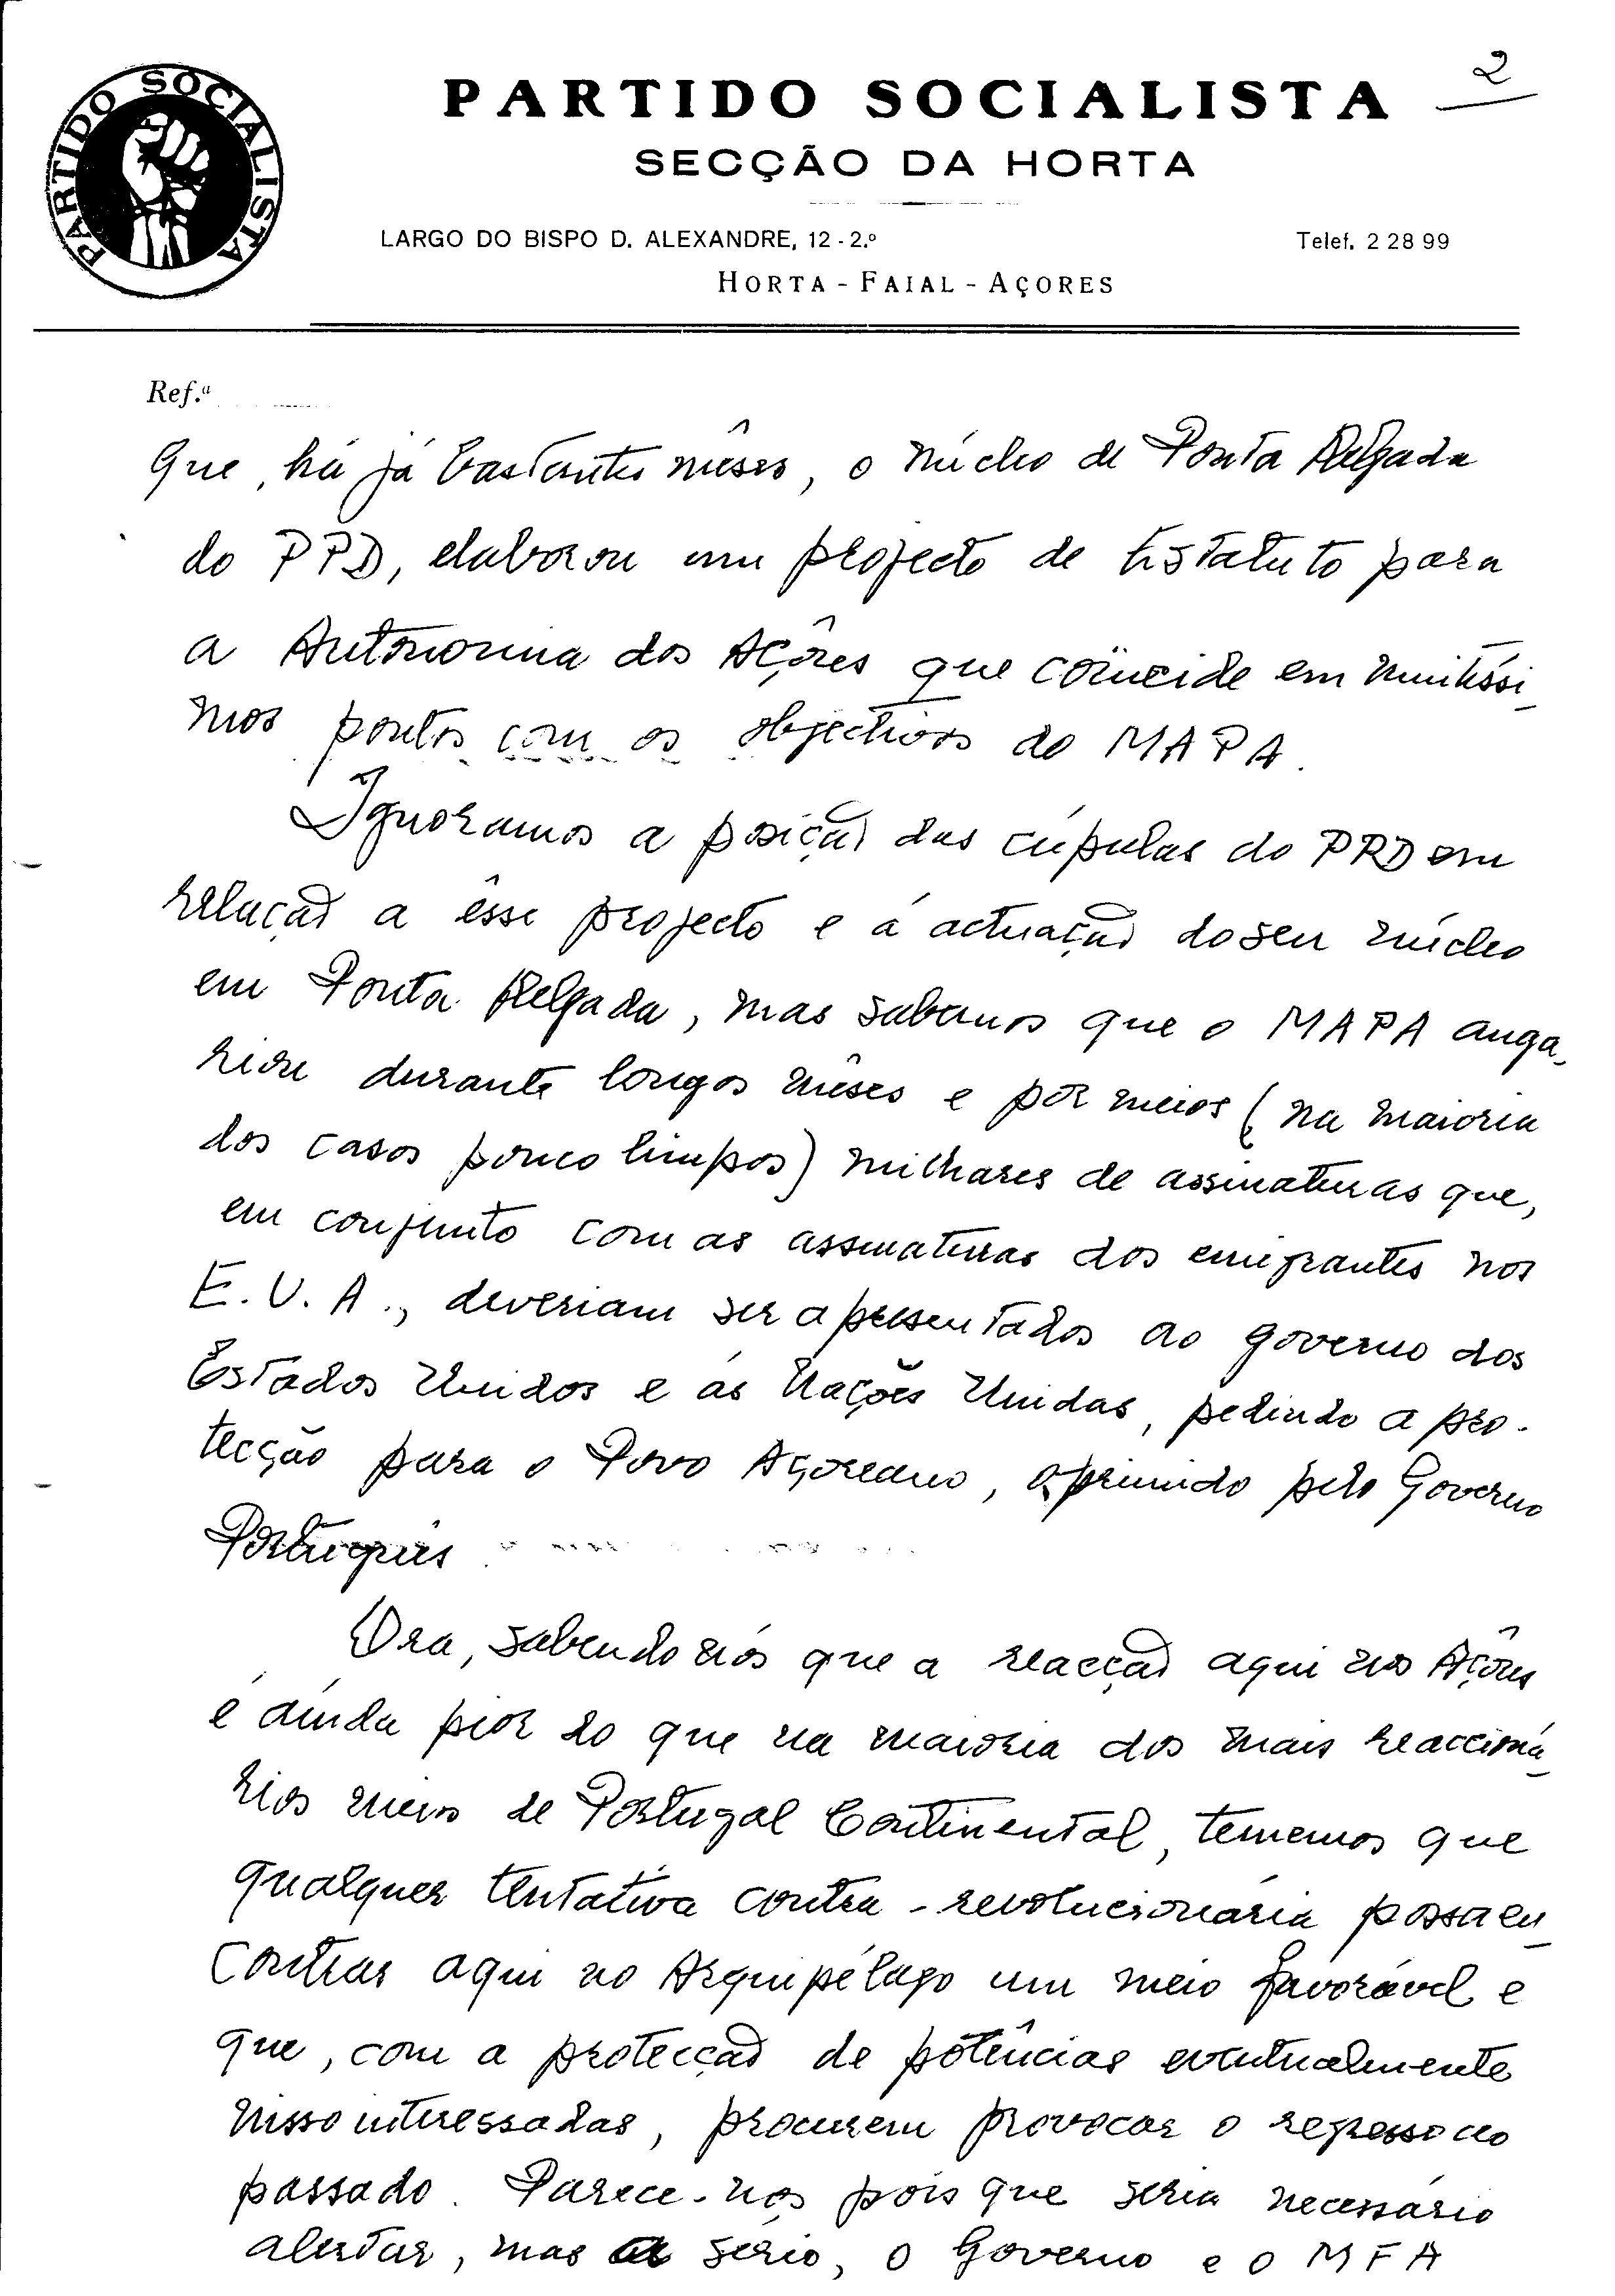 PARTIDO SOCIALISTA
PARTIDO SOCIALISTA
2
SECÇÃO DA HORTA
LARGO DO BISPO D. ALEXANDRE, 12 - 2.º
Telef. 2 28 99
HORTA - FAIAL - AÇORES
Ref.ª
que, há já bastantes mêses, o núcleo de Ponta Delgada
do PPD, elaborou um projecto de Estatuto para
a Autonomia dos Açôres que coïncide em muitíssi-
mos pontos com os objectivos do MAPA.
Ignoramos a posição das cúpulas do PPD em
relação a êsse projecto e á actuação do seu núcleo
em Ponta Delgada, mas sabemos que o MAPA anga-
riou durante longos mêses e por meios (na maioria
dos casos pouco limpos) milhares de assinaturas que,
em conjunto com as assinaturas dos emigrantes nos
E.U.A., deveriam ser apresentados ao governo dos
Estados Unidos e ás Nações Unidas, pedindo a pro-
tecção para o Povo Açoreano, oprimido pelo Governo
Português.
Ora, sabendo nós que a reacção aqui nos Açôres
é ainda pior do que na maioria dos mais reaccioná-
rios meios de Portugal Continental, tememos que
qualquer tentativa contra-revolucionária possa en-
contrar aqui no Arquipélago um meio favorável e
que, com a protecção de potências eventualmente
nisso interessadas, procurem provocar o regresso ao
passado. Parece-nos pois que seria necessário
alertar, mas a sério, o Governo e o MFA